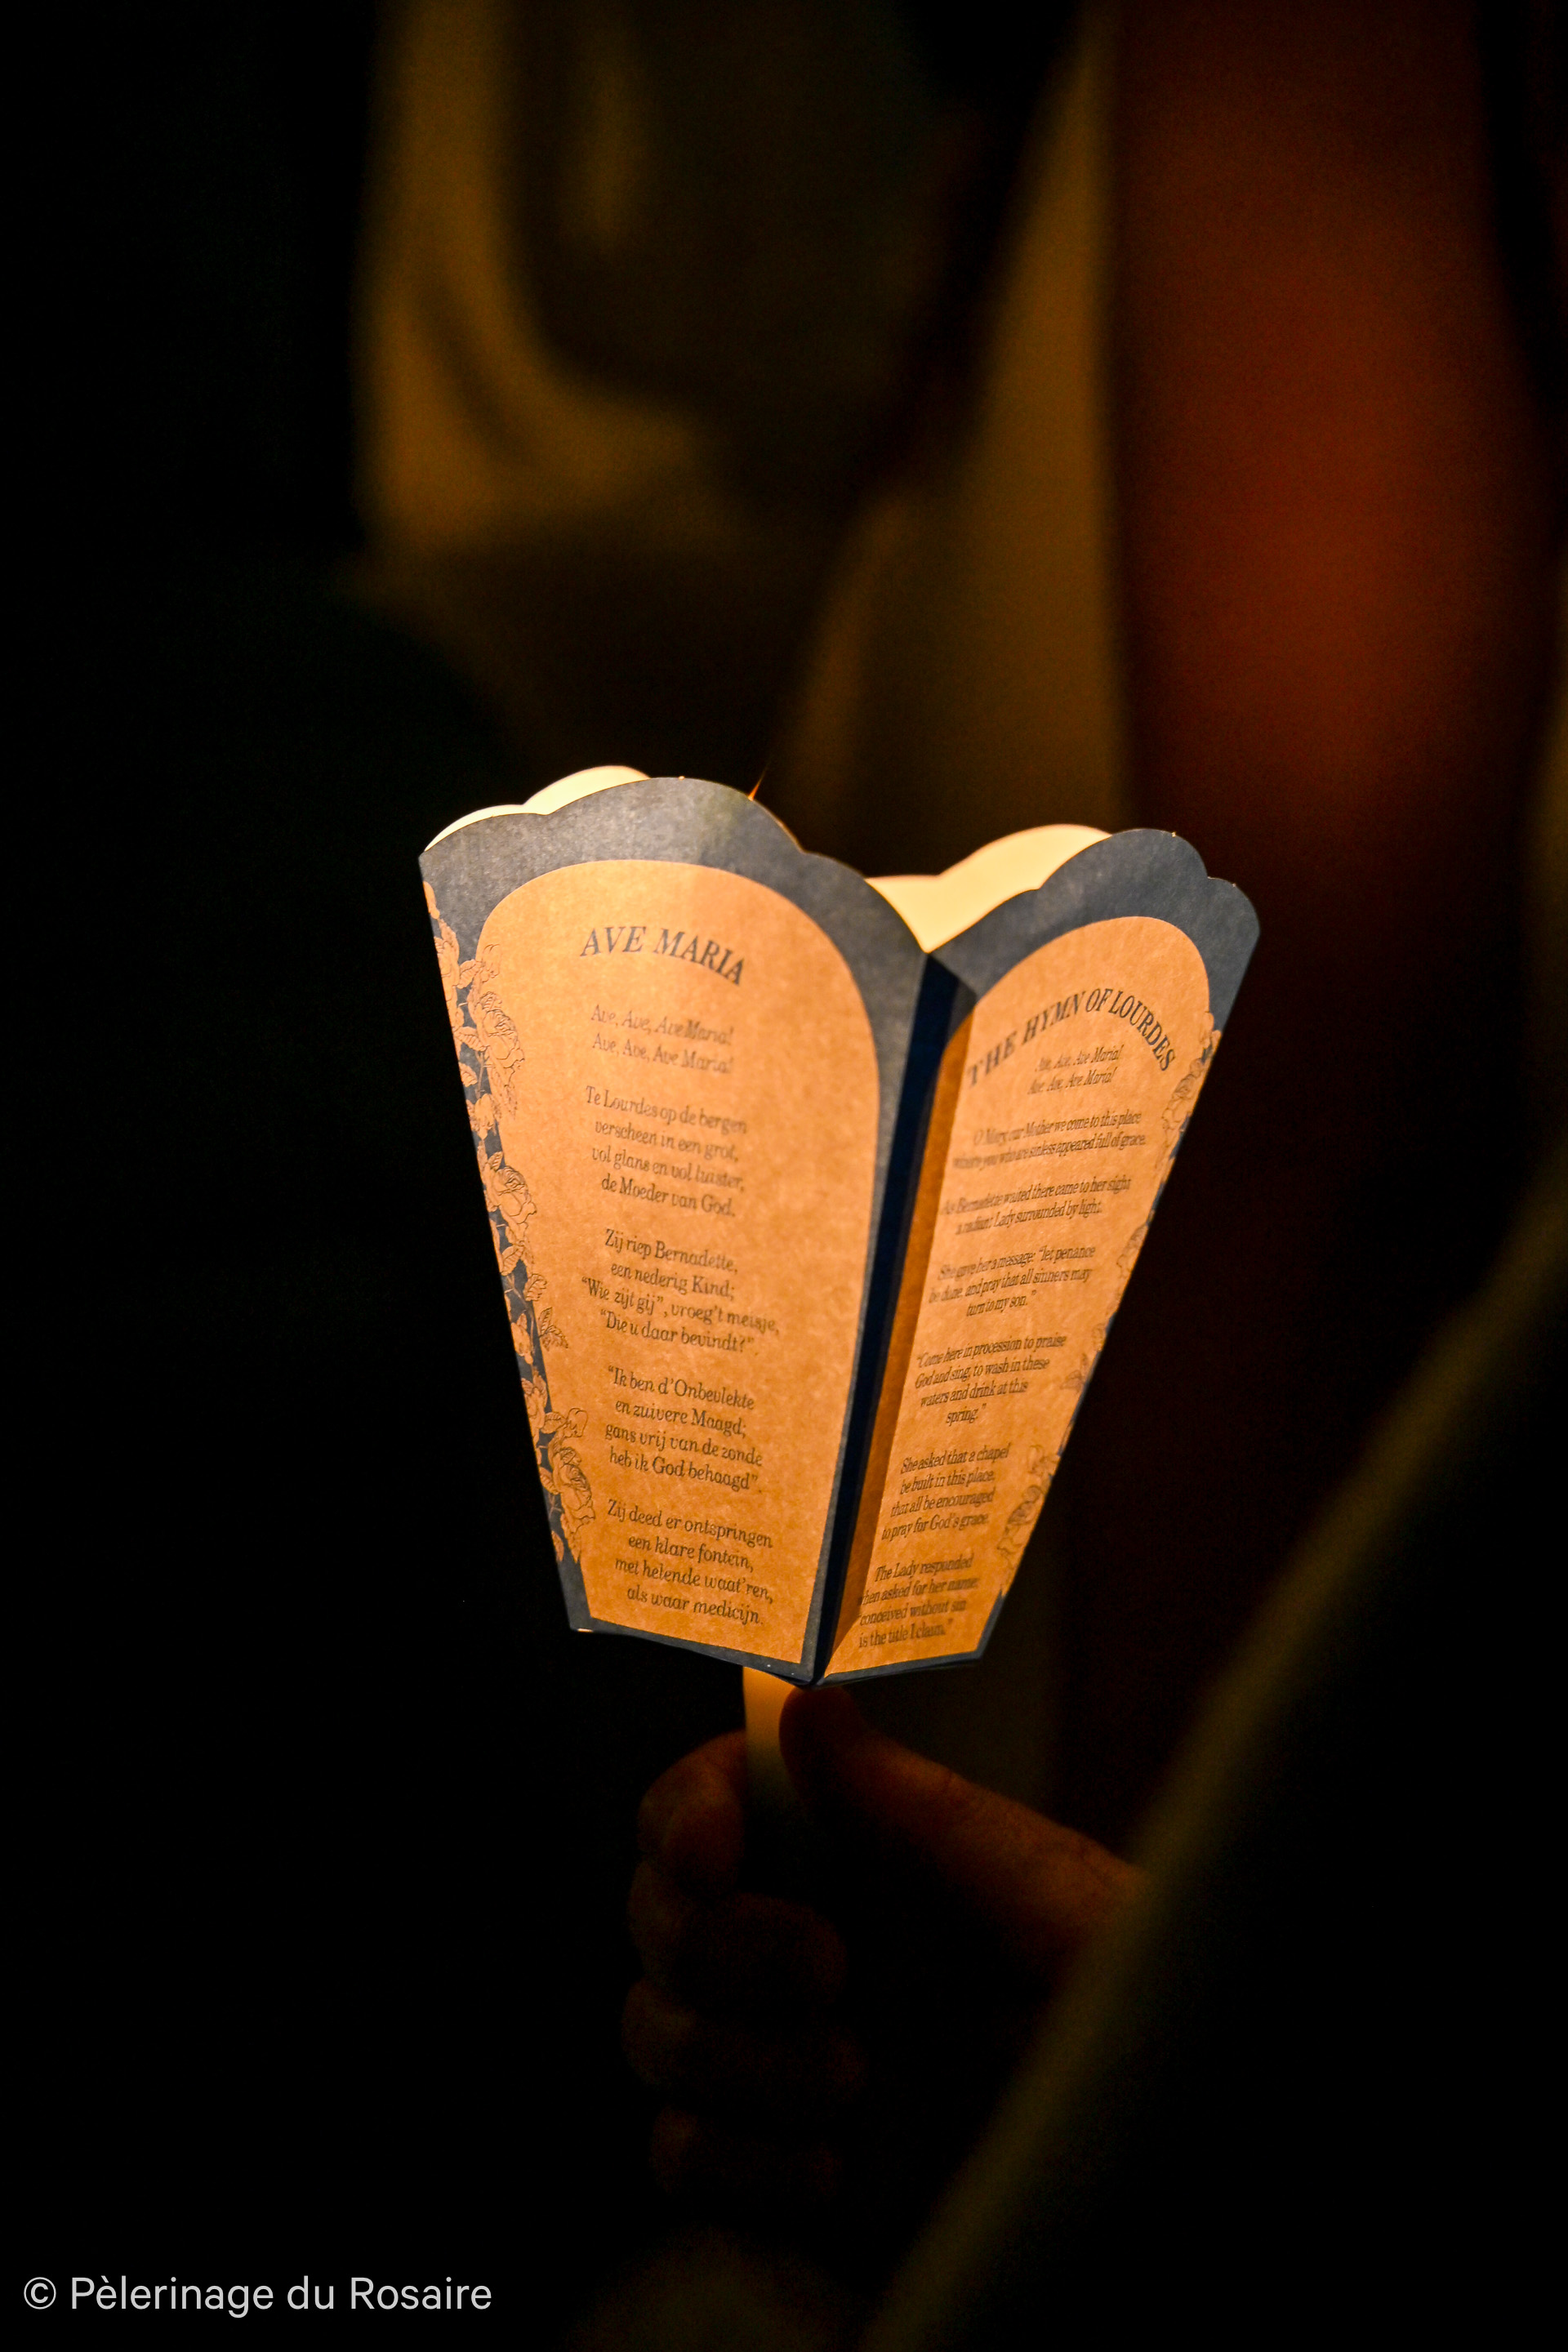 AVE MARIA
Ave, Ave, Ave Maria!
Ave, Ave, Ave Maria!
Te Lourdes op de bergen
verscheen in een grot,
vol glans en vol luister,
de Moeder van God.
Zij riep Bernadette,
een nederig Kind;
“Wie zijt gij”, vroeg’t meisje,
“Die u daar bevindt?”.
“Ik ben d’Onbevlekte
en zuivere Maagd;
gans vrij van de zonde
heb ik God behaagd”.
Zij deed er ontspringen
een klare fontein,
met helende waat’ren,
als waar medicijn.
THE HYMN OF LOURDES
Ave, Ave, Ave Maria!
Ave, Ave, Ave Maria!
O Mary, our Mother we come to this place
where you who are sinless appeared full of grace.
As Bernadette waited there came to her sight
a radiant Lady surrounded by light.
She gave her a message: “let penance
be done, and pray that all sinners may
turn to my son.”
“Come here in procession to praise
God and sing, to wash in these
waters and drink at this
spring.”
She asked that a chapel
be built in this place,
that all be encouraged
to pray for God’s grace.
The Lady responded
when asked for her name:
“conceived without sin
is the title I claim.”
© Pèlerinage du Rosaire